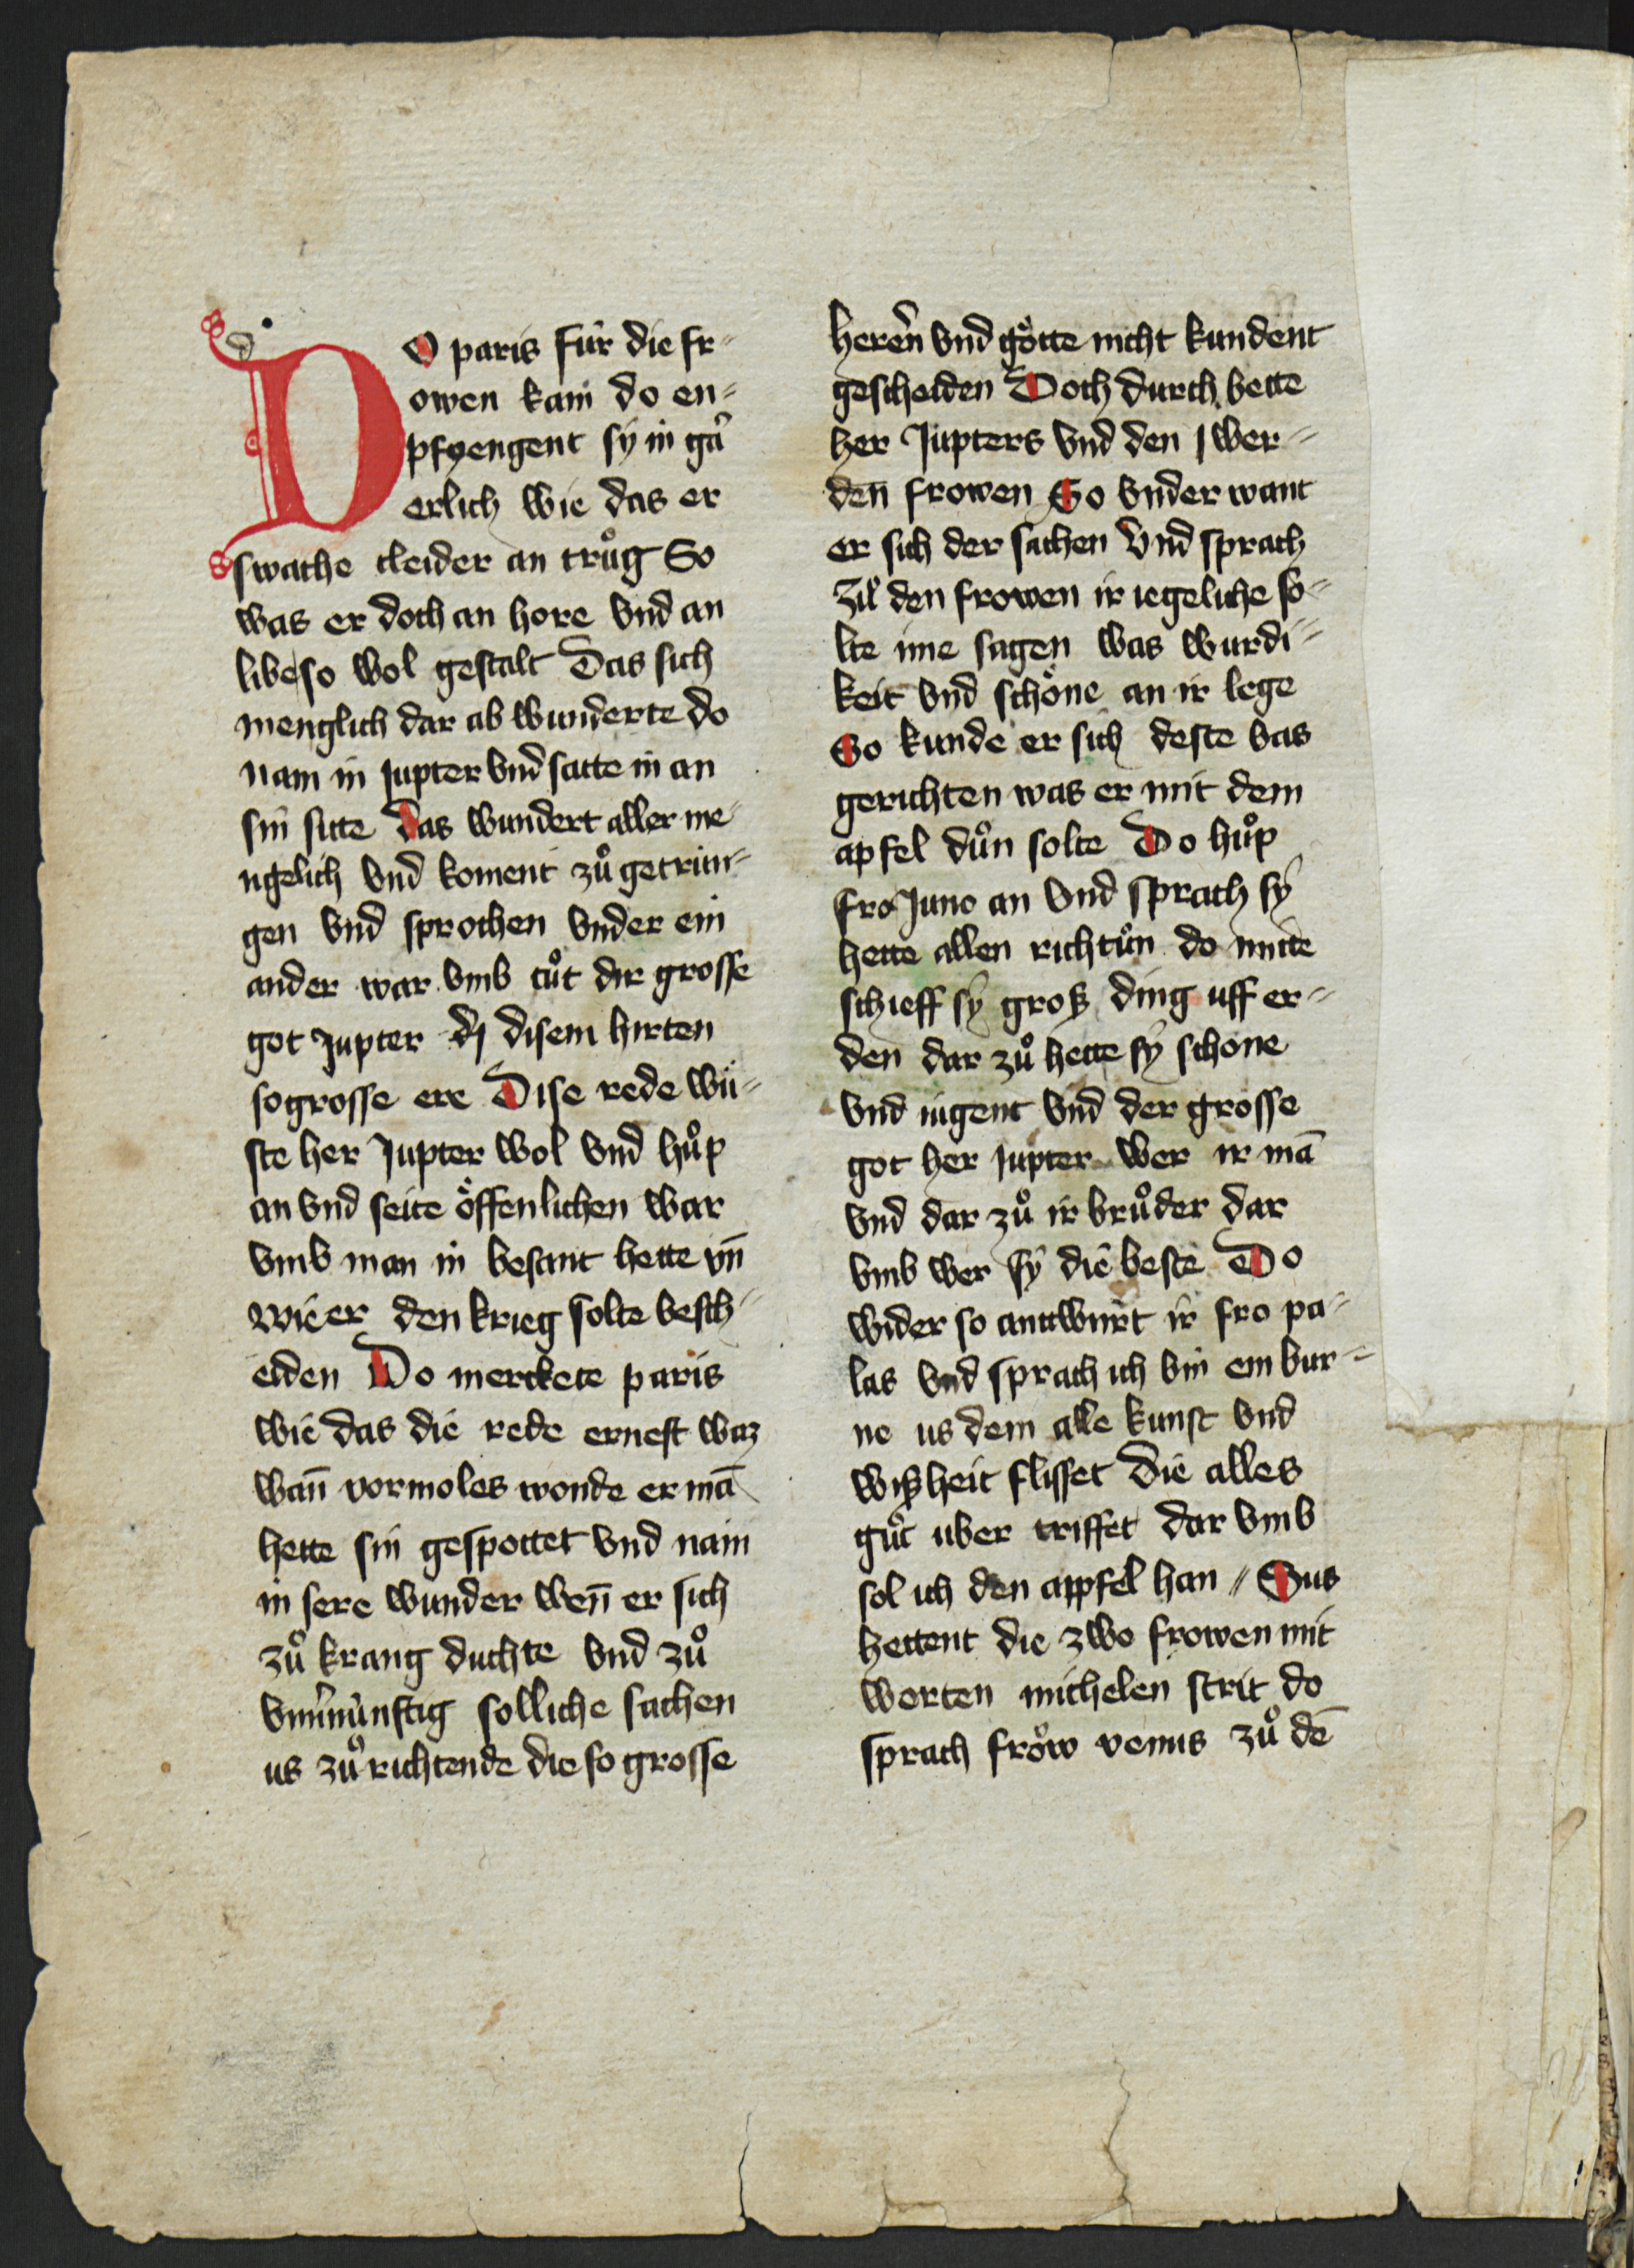 DO paris fúr die fr-
owen kam do en-
pfyengent sÿ in gar
erlich wie das er
swache cleider an trůg So
was er doch an hore vnd an
libe so wol gestalt Das sich
menglich dar ab wunderte do
nam in Jupter vnd satte in an
sin sitte Das wundert aller me-
ngelich vnd koment zů getrun-
gen vnd sprochen vnder ein
ander war vmb tůt dir grosse
got Jupter disem hirten
so grosse ere Dise rede wú-
ste her Jupter wol vnd hůp
an vnd seite öffenlichen war
vmb man in besant hette vn̄
wie er den krieg solte besch-
eiden Do merckete paris
wie das die rede ernest waz
wan̄ vormoles wonde er mā
hette sin gespottet vnd nam
in sere wunder wen̄ er sich
zů krang duchte vnd zů
vnvernúnftig solliche sachen
us zů richtende die so grosse
heren vnd götte nicht kundent
gescheiden Doch durch bette
her Jupters vnd den wer-
den frowen So vnder want
er sich der sachen Vnd sprach
zů den frowen ir iegeliche so-
lte ime sagen was wurdi-
keit vnd schöne an ir lege
So kunde er sich deste bas
gerichten was er mit dem
apfel důn solte Do hůp
fro Juno an vnd sprach sÿ
hette allen richtůn do mitte
schieff sÿ groß ding uff er-
den dar zů hette sÿ schone
vnd iugent vnd der grosse
got her Jupter wer ir mā
vnd dar zů ir brůder dar
vmb wer sÿ die beste Do
wider so anttwúrt ir fro pa-
las vnd sprach ich bin ein bur-
ne us dem alle kunst vnd
wißheit flisset Die alles
gůt uber triffet dar vmb
sol ich den appfel han // Sus
hettent die zwo frowen mit
worten michelen strit do
sprach fröw venus zů dē